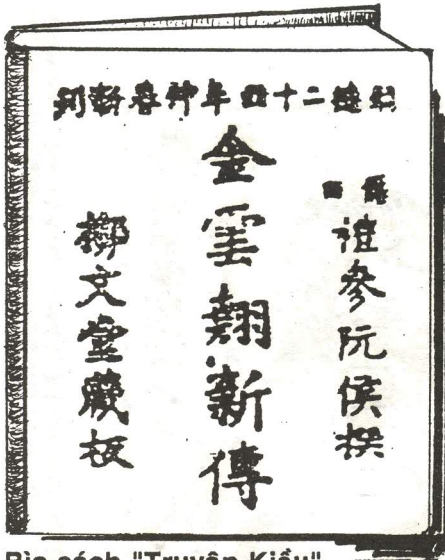 嗣德二十四年仲春新刊
禮參阮侯撰
金雲翹新傳
柳文堂藏板
Bìa sách "Truyện Kiều"